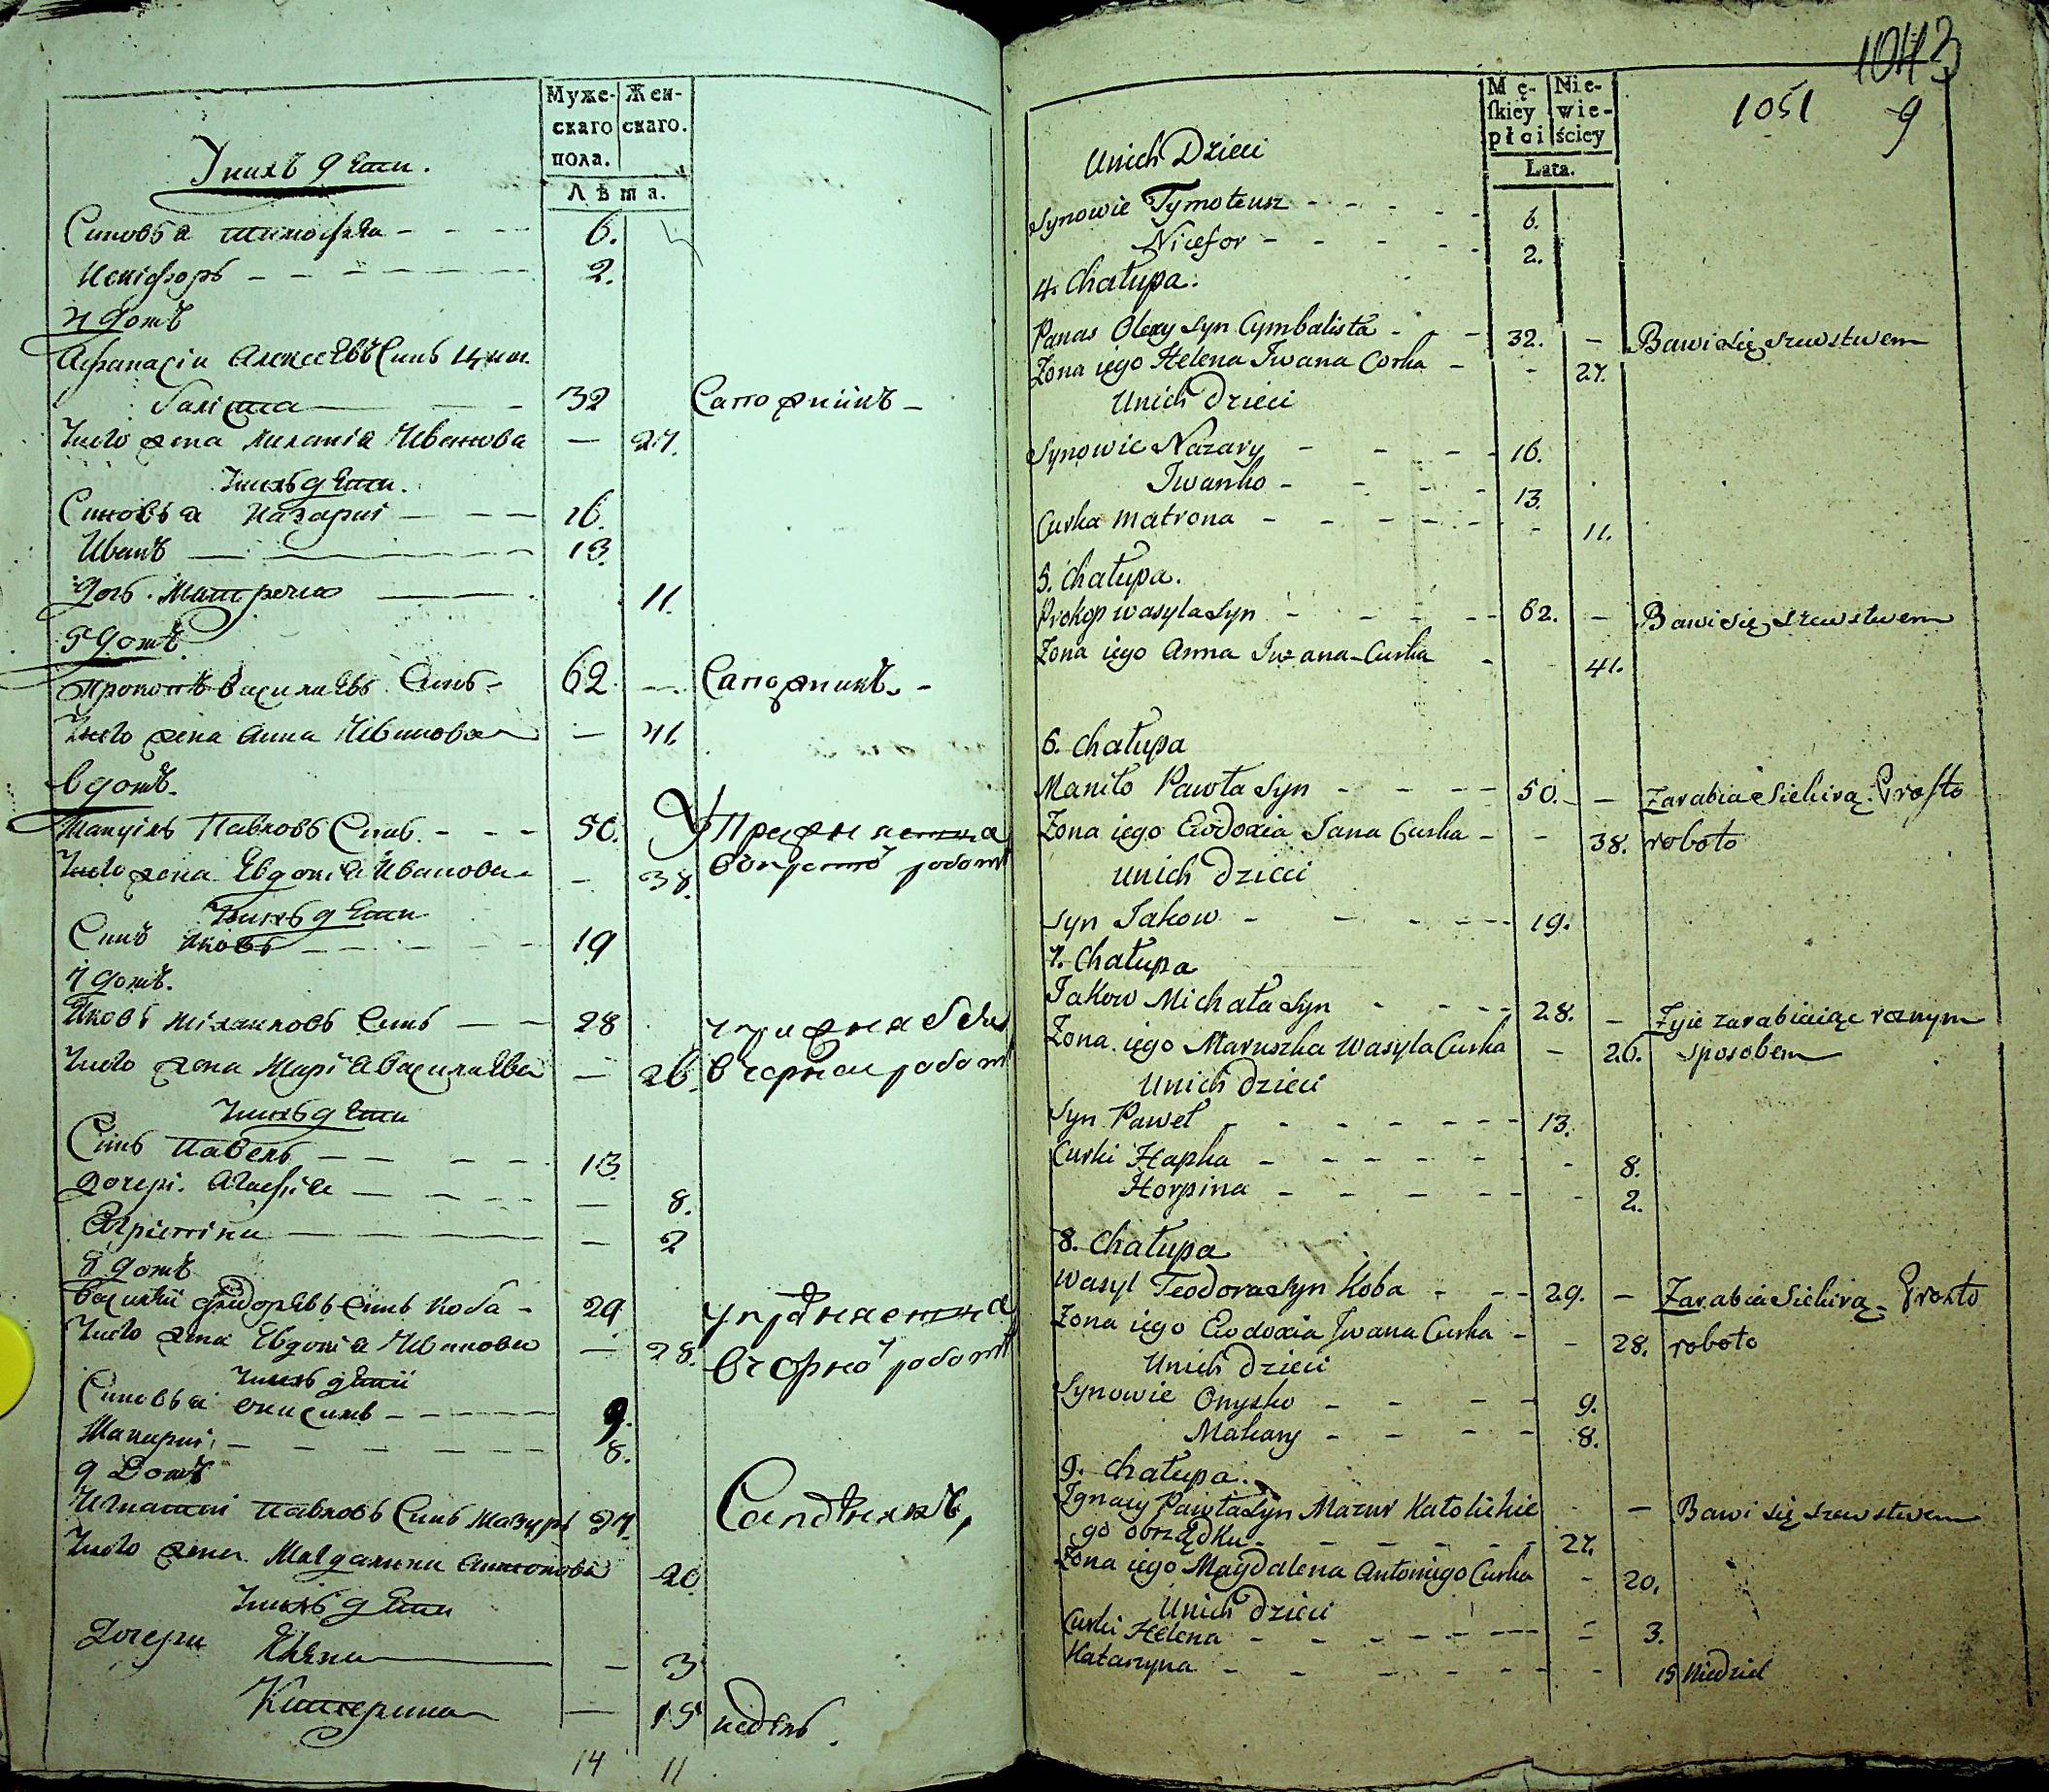 Муже-
скаго
пола.
Жен-
скаго.
Лѣта.
Унихъ дѣти.
Синовья Тимофѣй 6.
Никифоръ 2.
4 домъ
Афанасій Алексѣевъ Синъ Цим
балиста 32 Сапожникъ
Унего жена Иванова — 27.
Унихъ дѣти.
Синовья Назарій 16.
Иванъ 13.
Дочь Матрена 11.
5 домъ.
Прокопъ Василѣевъ Синъ 62. — Сапожникъ.
Унего жена Анна Иванова — 41.
6 домъ.
Мануилъ Павловъ Синъ 50. Упражняетца
Унего жена Евдокія Иванова — 38. робот
Унихъ дѣти
Синъ Яковъ 19
7 домъ.
Яковъ Михайловъ Синъ 28
Унего жена Марія Василѣева — 26. в чорной работ
Унихъ дѣти
Синъ Павелъ 13.
Дочери Агафія — 8.
Агрипина — 2
8 домъ
Василій Федорѣевъ Синъ Коба 29. упражняетца
Унего жена Евдокія Иванова — 28. в чорной работ
Унихъ дѣти
Синовья Онисимъ 9.
Макарій 8.
9 Домъ
Игнатій Павловъ Синъ Мазуръ 27. Сапожникъ,
Унего жена Магдалина Антонова 20
Унихъ дѣти
Дочери Елена — 3
Катерина — 15 недѣль.
14 11
1043
Mę-
skiey
płci
Nie-
wie-
ściey
Lata.
1051 9
Unich Dzieci
Synowie Tymoteusz 6.
Nicefor 2.
4. Chałupa.
Panas Olexy Syn Cymbalista 32. — Bawi się szewstwem
Zona iego Helena Iwana Corka - 27.
Unich Dzieci
Synowie Nazary 16.
Iwanko 13.
Curka Matrona - 11.
5. Chałupa.
Prokop Wasyla Syn 62. — Bawi się szewstwem
Zona iego Anna Iwana Curka 41.
6. Chałupa
Maniło Pawła Syn 50. — Zarabia Siekirą. Prosto
Zona iego Eudoxia Jana Curka - 38. roboto
Unich Dzieci
Syn Jakow 19.
7. Chałupa
Jakow Michała Syn 28. — Zyie zarabiaiąc roznym
Zona iego Maruszka Wasyla Curka — 26. sposobem
Unich Dzieci
Syn Paweł 13.
Curki Hapka - 8.
Horpina - 2.
8. Chałupa
Wasyl Teodora Syn Koba 29. — Zarabia Siekirą. Prosto
Zona iego Eudoxia Iwana Curka - 28. roboto
Unich Dzieci
Synowie Onysko 9.
Makary 8.
9. Chałupa.
Ignacy Pawła Syn Mazur Katolickie — Bawi się szewstwem
go obrządku 27.
Zona iego Magdalena Antoniego Curka - 20.
Unich Dzieci
Curki Helena - 3.
Katarzyna - 15 niedziel